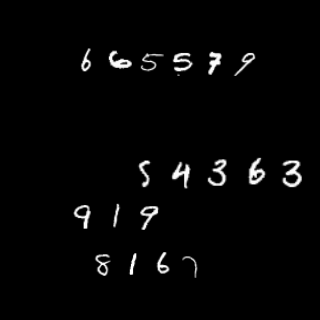 6 6 5 5 7 9
5 4 3 6 3
9 1 9
8 1 6 7